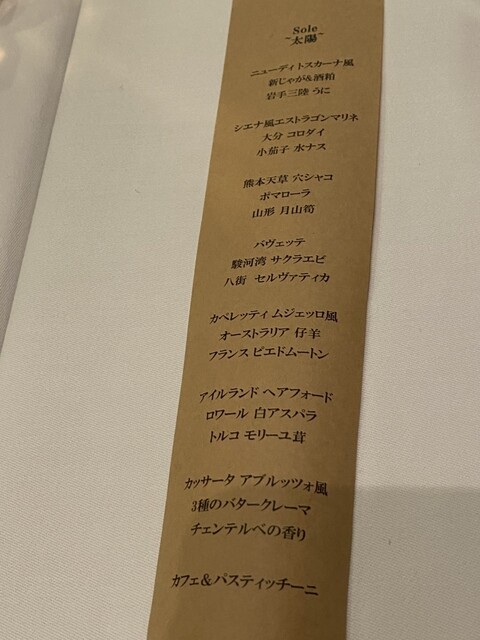 Sole
~太陽~
ニューディ トスカーナ風
新じゃが&酒粕
岩手三陸 うに
シエナ風エストラゴンマリネ
大分 コロダイ
小茄子 水ナス
熊本天草 穴シャコ
ポマローラ
山形 月山筍
バヴェッテ
駿河湾 サクラエビ
八街 セルヴァティカ
カペレッティ ムジェッロ風
オーストラリア 仔羊
フランス ピエドムートン
アイルランド ヘアフォード
ロワール 白アスパラ
トルコ モリーユ茸
カッサータ アブルッツォ風
3種のバタークレーマ
チェンテルベの香り
カフェ&パスティッチーニ